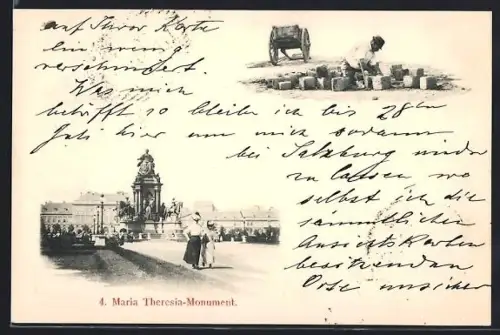 auf Ihrer Karte
ein wenig
verschmiert.
Was mich
betrifft so bleibe ich bis 28ten
Juli hier um mich sodann
bei Salzburg nieder
zu lassen wo
selbst ich die
sämmtlichen
Ansichtskarten
besitzenden
Orte unsicher
4. Maria Theresia-Monument.